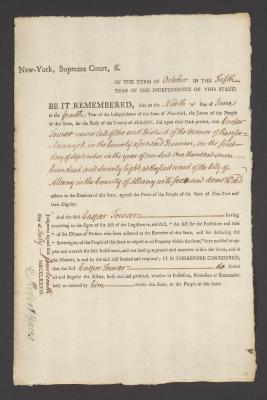 New-York, Supreme Court, ſſ.
OF THE TERM OF October IN THE Fifth
YEAR OF THE INDEPENDENCE OF THIS STATE:
BE IT REMEMBERED, that on the Ninth Day of June
in the fourth Year of the Independence of the State of New-York, the Jurors of the People
of this State, for the Body of the County of ALBANY, did upon their Oath present, that Caspar
late of the west District of the Manor of
in the County aforesaid Yeoman, on the first
day of September in the year of our Lord One thousand seven
hundred and seventy eight, at the first ward of the City of
Albany in the County of Albany with force and arms &c did
adhere to the Enemies of this State, against the Peace of the People of the State of New-York and
their Dignity.
And the said Caspar having
according to the form of the Act of the Legislature, entitled, "An Act for the Forfeiture and Sale
"of the Estates of Persons who have adhered to the Enemies of this State, and for declaring the
"Sovereignty of the People of this State in respect to all Property within the same," been notified to ap-
pear and traverse the said Indictment, and not having appeared and traversed within the Time, and in
the Manner, in and by the said Act limited and required; IT IS THEREFORE CONSIDERED,
that the said Caspar do forfeit
all and singular the Estate, both real and personal, whether in Possession, Reversion or Remainder,
held or claimed by him within this State, to the People of this State.
Judgment signed this
Day of July